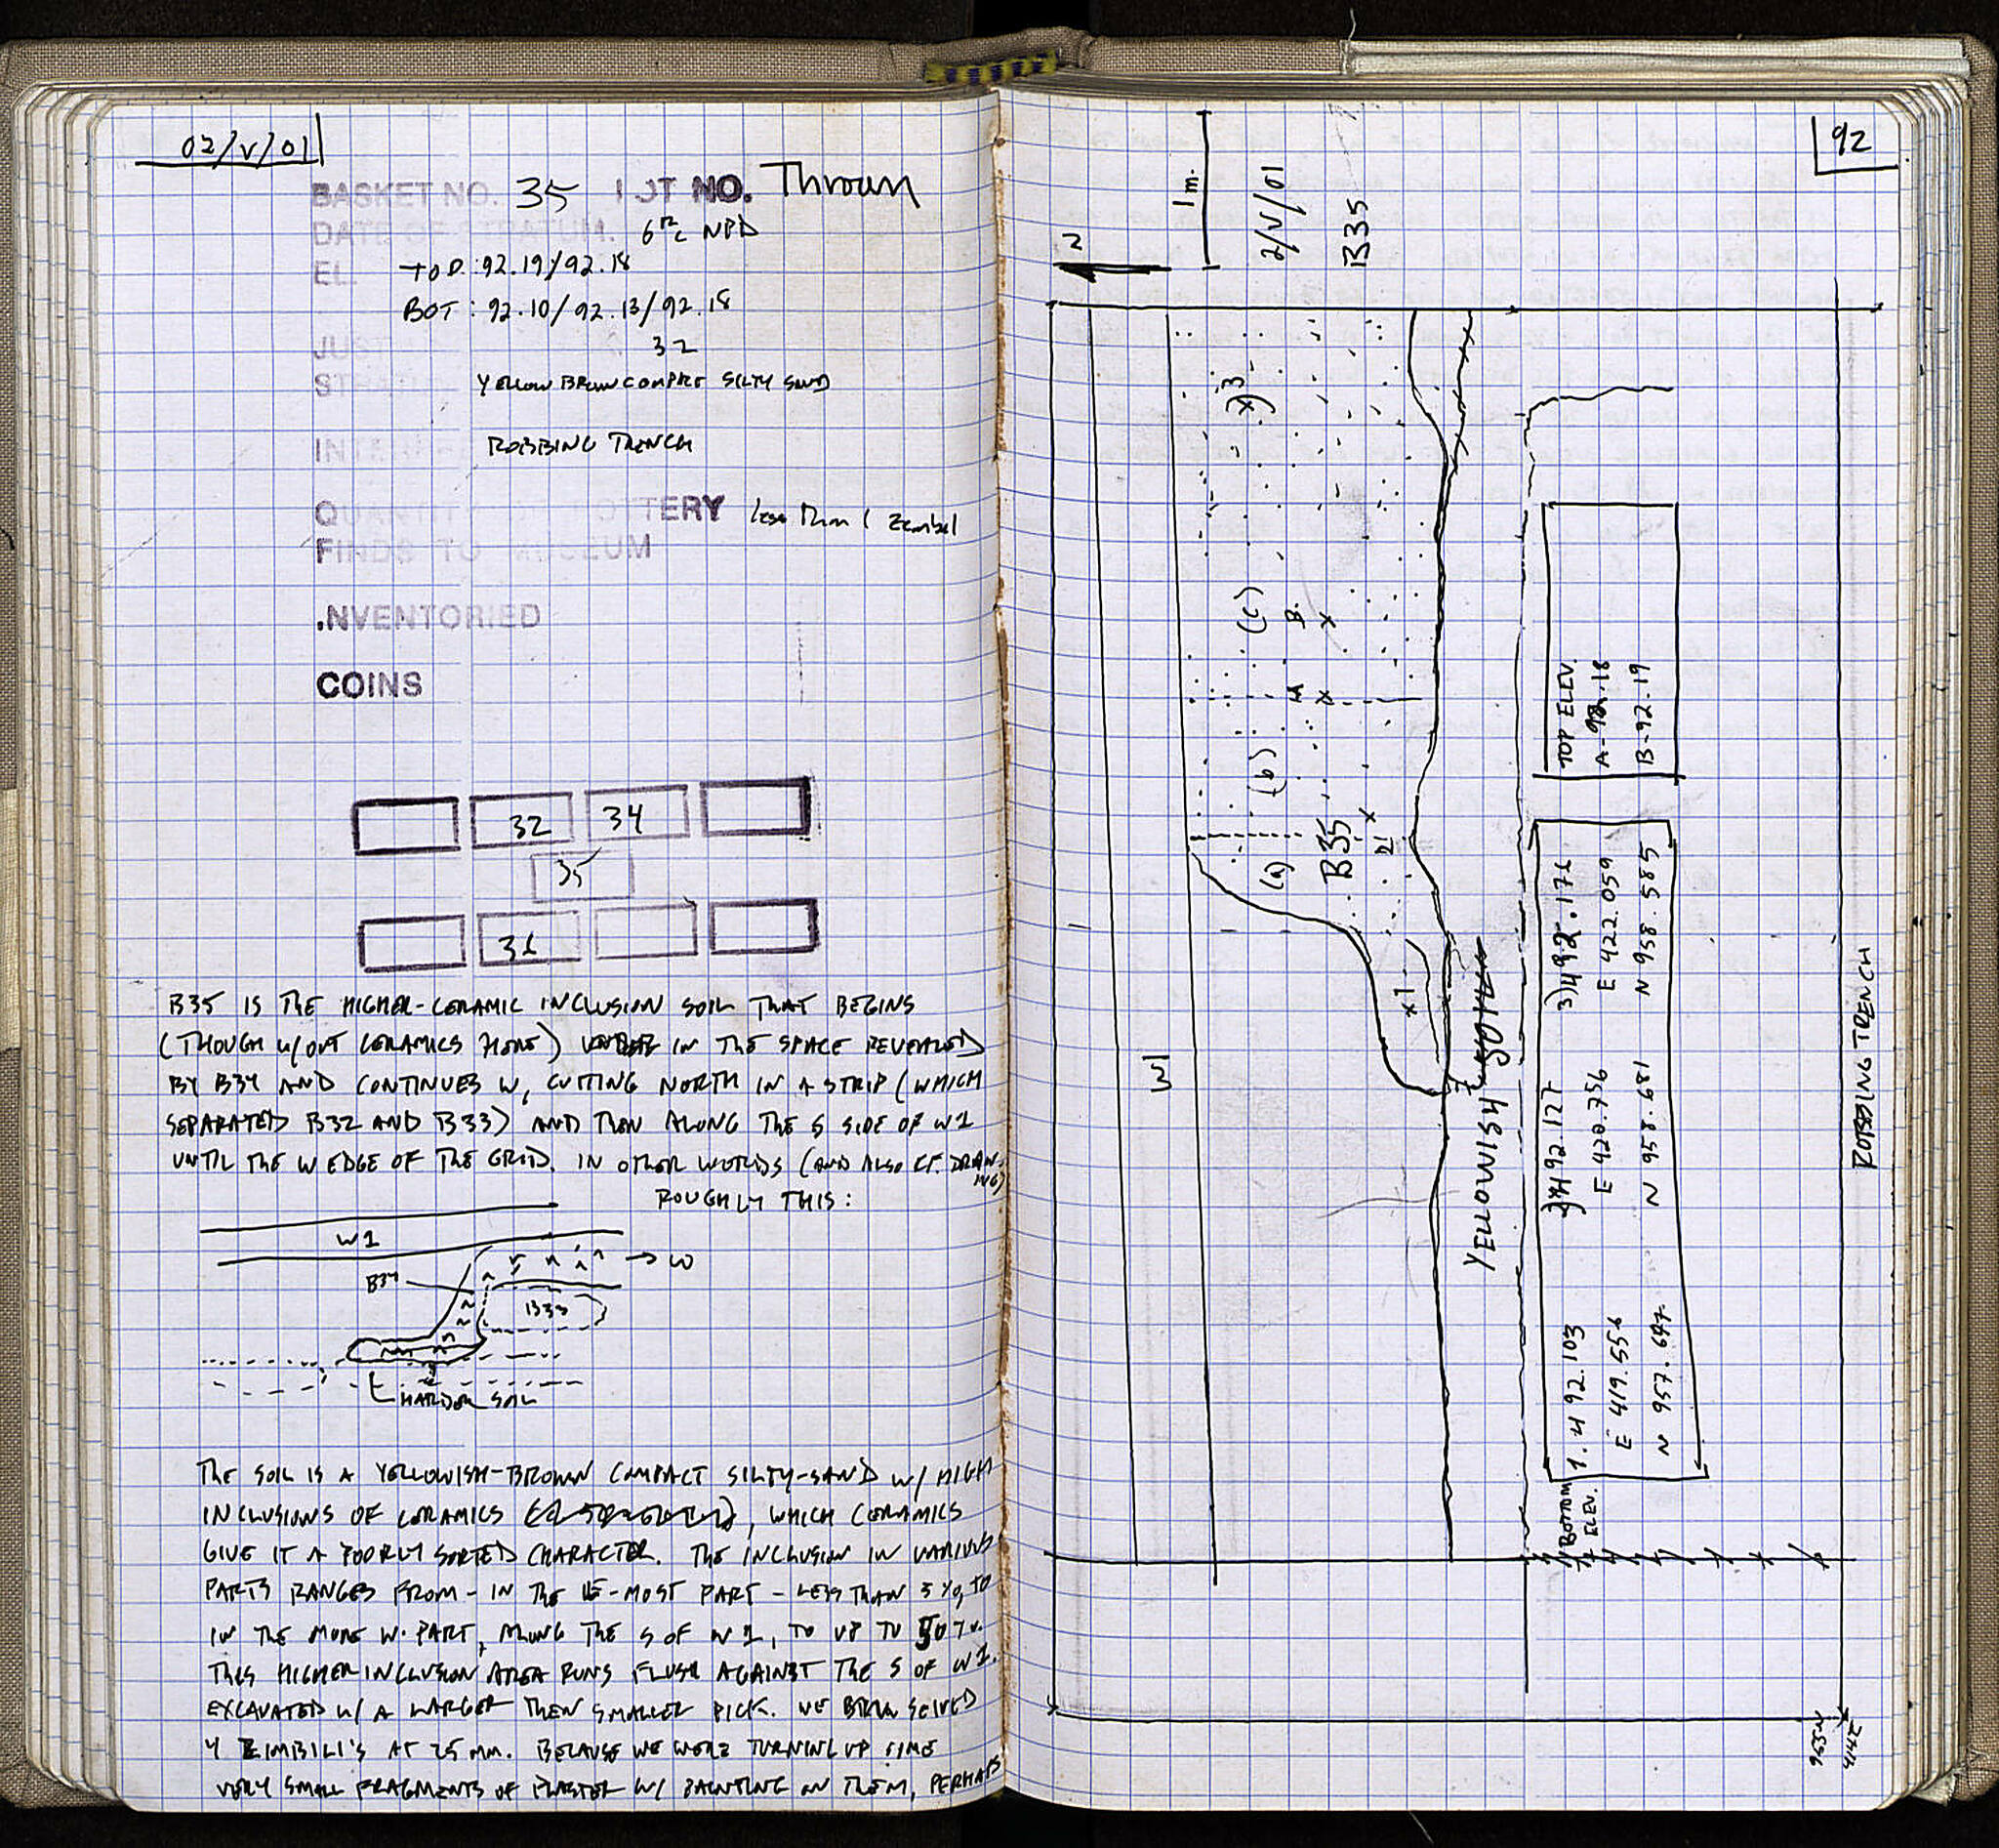 02/V/01
BASKET NO. 35 LOT NO. Thrown
DATE OF STRATUM. 6th c NPD
EL. TOP: 92.19/92.18
BOT: 92.10/92.13/92.18
32
YELLOW BROWN COMPACT SILTY SAND
ROBBING TRENCH
QUANTITY OF POTTERY Less Than 1 Zembil
FINDS TO MUSEUM
.NVENTORIED
COINS
32 34
35
B35 IS THE HIGHER-CERAMIC INCLUSION SOIL THAT BEGINS
(THOUGH W/OUT CERAMICS HERE) IN THE SPACE REVEALED
BY B34 AND CONTINUES W, CUTTING NORTH IN A STRIP (WHICH
SEPARATED B32 AND B33) AND THEN ALONG THE S SIDE OF W1
UNTIL THE W EDGE OF THE GRID. IN OTHER WORDS (AND ALSO CF. DRAWING)
ROUGHLY THIS:
W1
→ W
B34
B33
HARDER SOIL
THE SOIL IS A YELLOWISH-BROWN COMPACT SILTY-SAND W/ HIGH
INCLUSIONS OF CERAMICS, WHICH CERAMICS
GIVE IT A POORLY SORTED CHARACTER. THE INCLUSION IN VARIOUS
PARTS RANGES FROM - IN THE E-MOST PART - LESS THAN 5%, TO
IN THE MORE W. PART, ALONG THE S OF W1, TO UP TO 50%.
THIS HIGHER INCLUSION AREA RUNS FLUSH AGAINST THE S OF W1.
EXCAVATED W/ A LARGER THEN SMALLER PICK. WE SEIVED
4 ZIMBILI'S AT 25 MM. BECAUSE WE WERE TURNING UP SOME
VERY SMALL FRAGMENTS OF PLASTER W/ PAINTING ON THEM, PERHAPS
92
1 m.
2/V/01
B35
x)3
(c)
B.
x
A
x
(b)
(a)
B35
2) x
x 1
W1
YELLOWISH SOIL
TOP ELEV.
A-92.18
B-92.19
BOTTOM ELEV.
1. H 92.103
E 419.556
N 957.697
2) H 92.127
E 420.756
N 958.681
3) H 92.176
E 422.059
N 958.585
ROBBING TRENCH